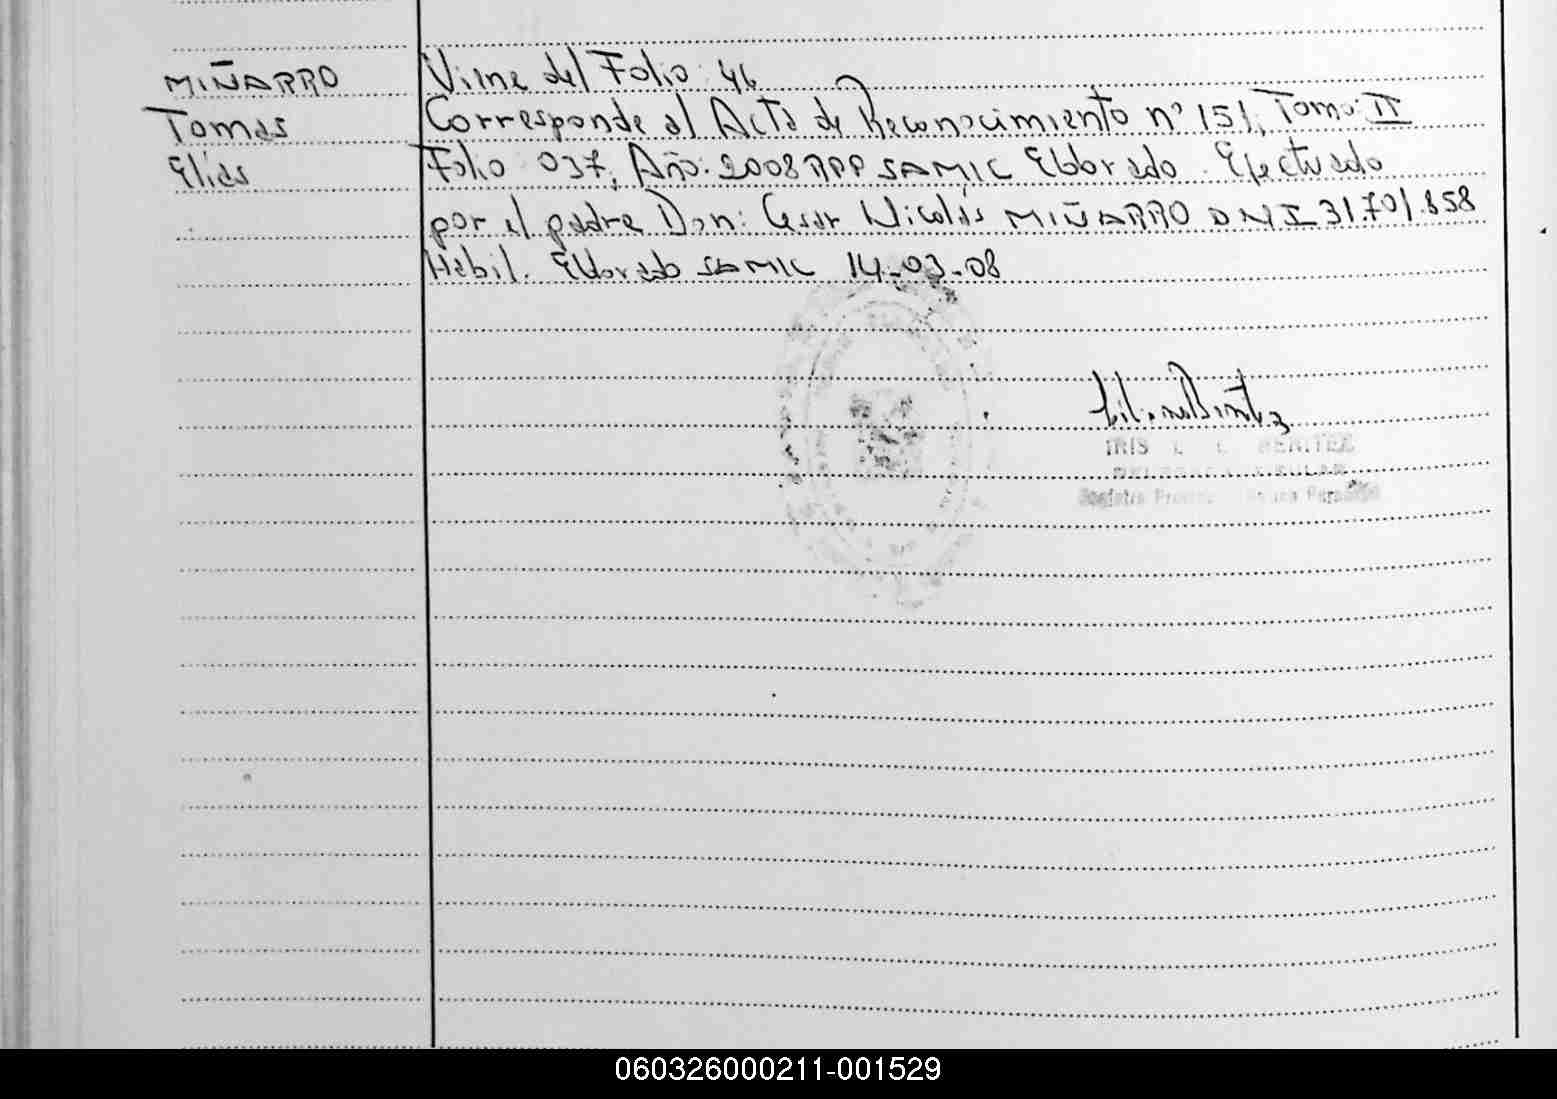 MIÑARRO
Tomas
Elias
Viene del Folio: 46
Corresponde al Acta de Reconocimiento nº 151, Tomo: II
Folio: 037, Año: 2008 RPP SAMIC Eldorado. Efectuado
por el padre Don: Cesar Nicolás MIÑARRO DNI 31.701.858
Habil. Eldorado SAMIC 14-03-08
IRIS BENITEZ
060326000211-001529